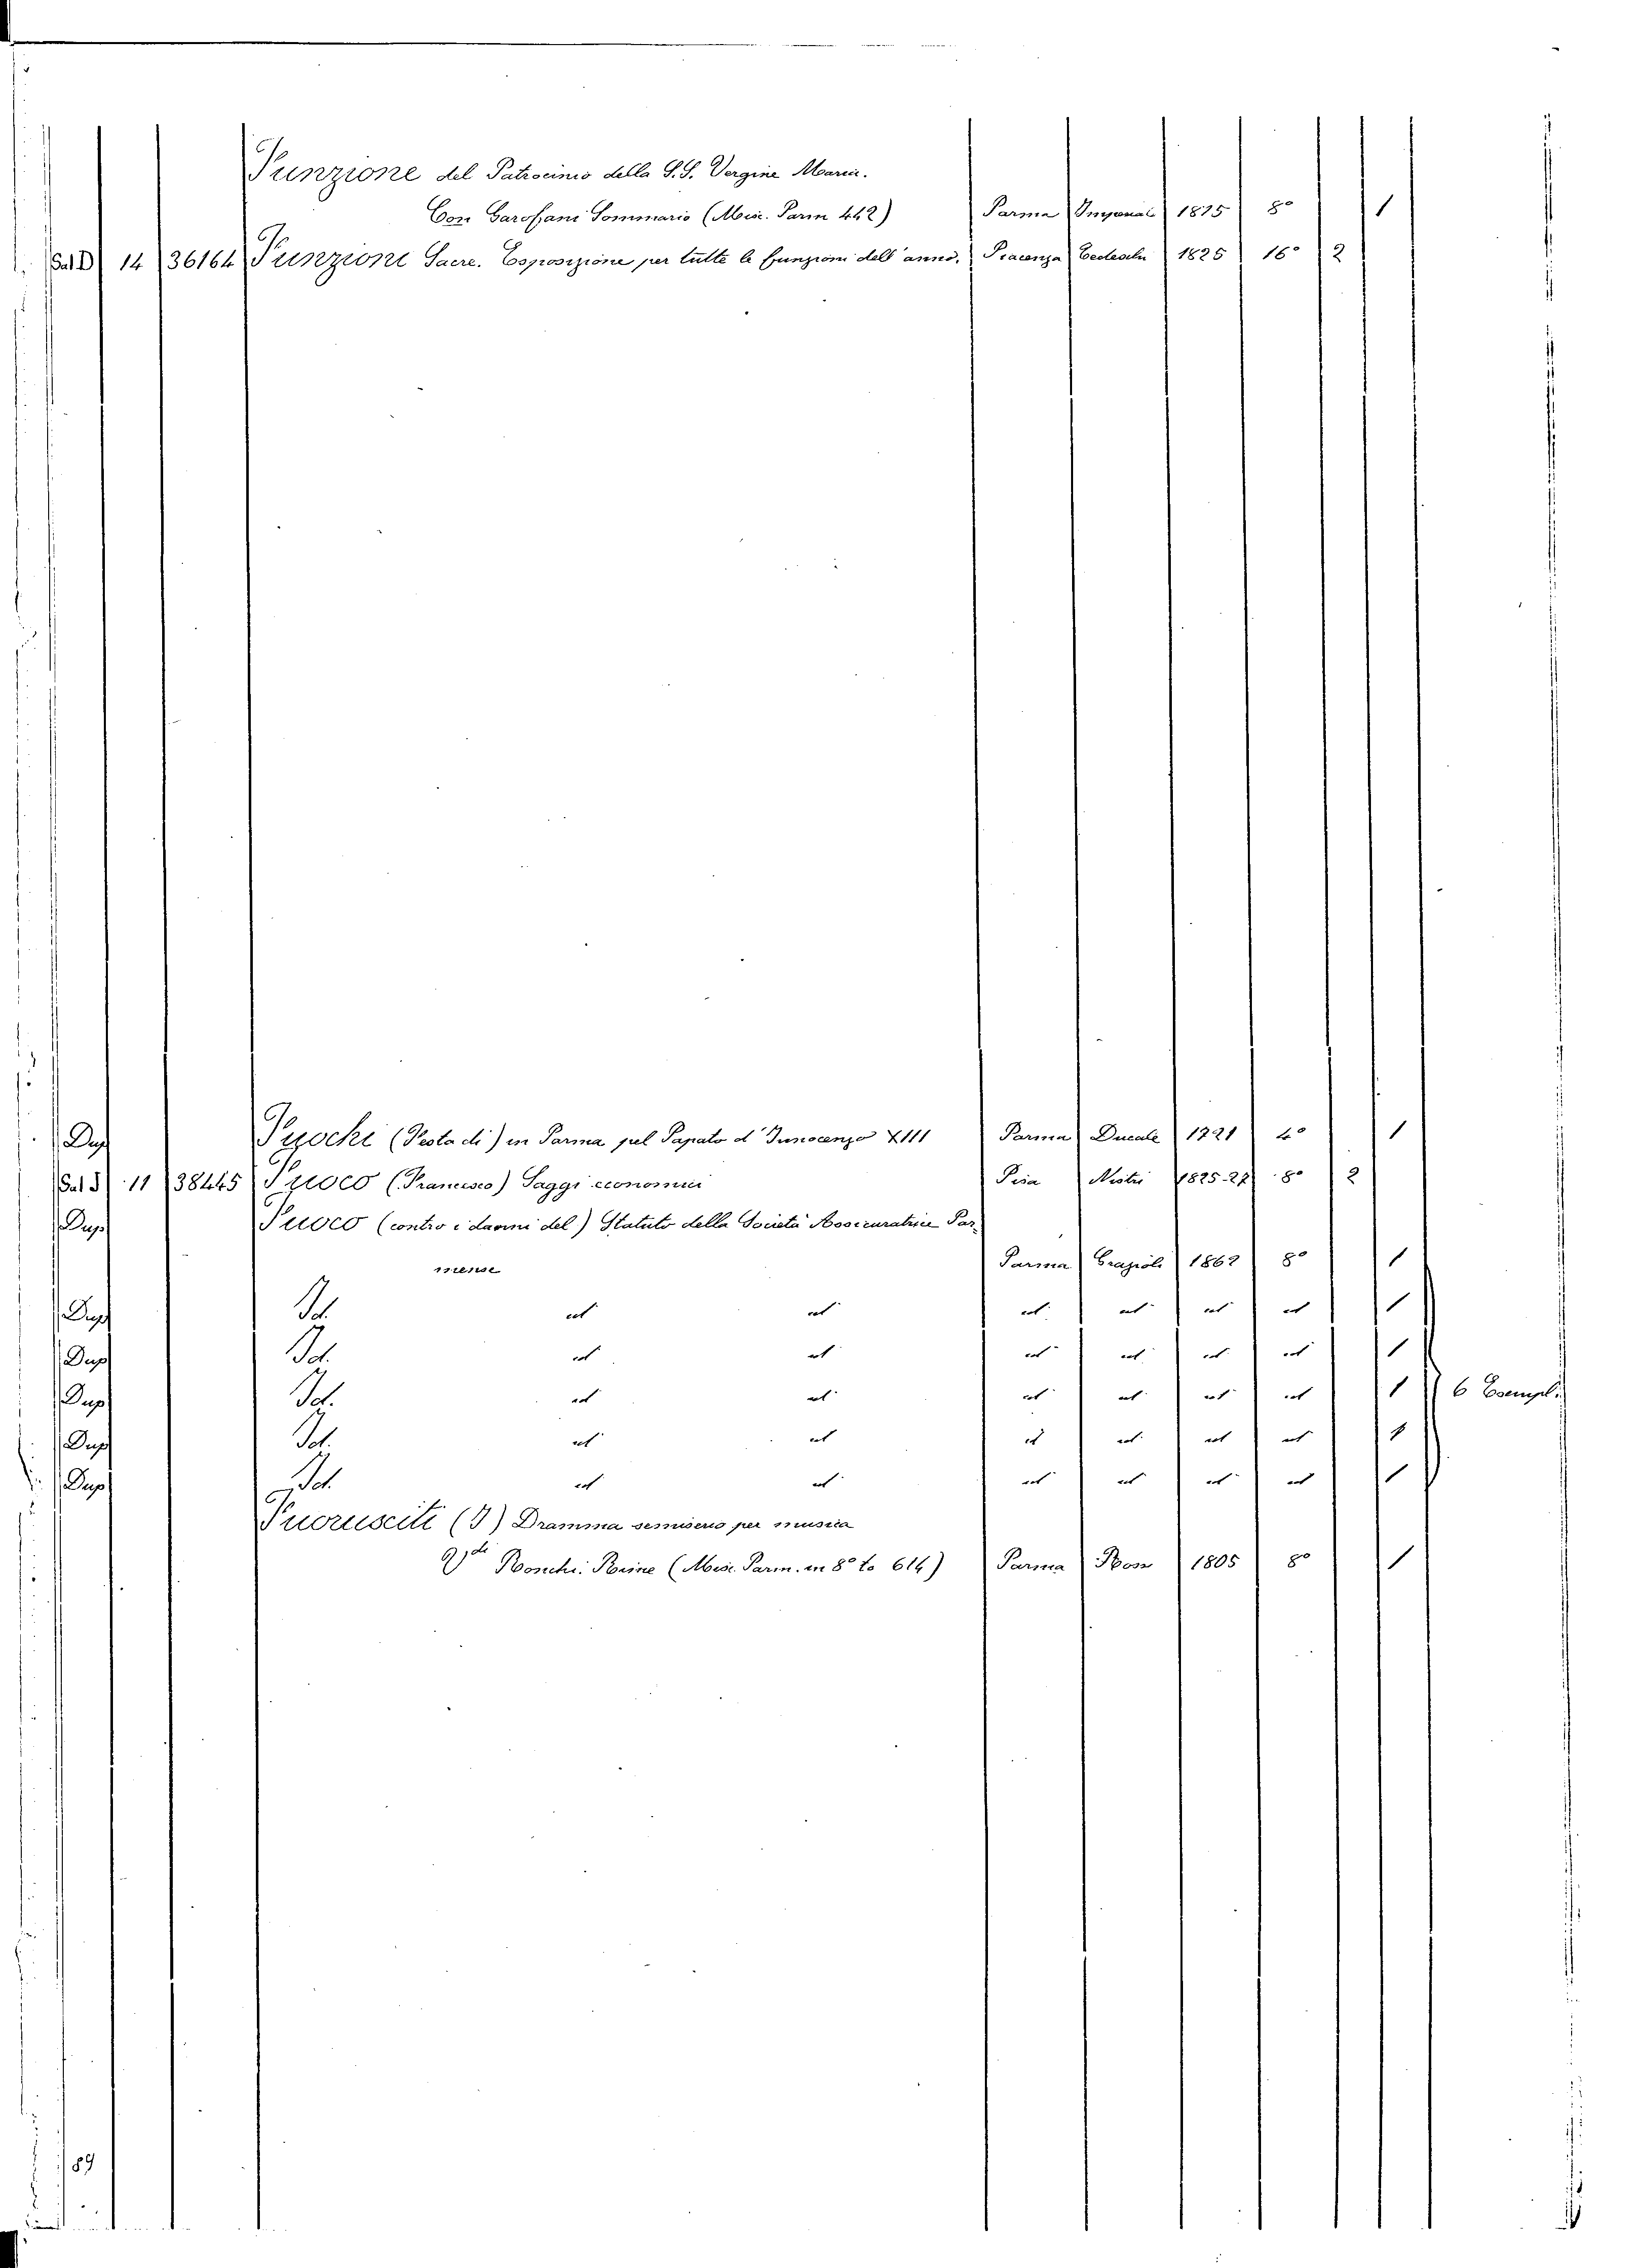 Funzione del Patrocinio della S.S. Vergine Maria.
Con Garofani Sommario (Misc. Parm 442) Parma Imperiale 1875 8° 1
Sal D 14 36164 Funzioni Sacre. Esposizione per tutte le funzioni dell'anno. Piacenza Tedeschi 1825 16° 2
Dup Fuochi (Festa di) in Parma pel Papato d'Innocenzo XIII Parma Ducale 1721 4° 1
Sal 11 38445 Fuoco (Francesco) Saggi economici Pisa Nistri 1825-27 8° 2
Dup Fuoco (contro i danni del) Statuto della Società Assicuratrice Par-
mense Parma Grazioli 1862 8° 1
Dup Id. id id id id id id 1
Dup Id. id id id id id id 1
Dup Id. id id id id id id 1 6 Esempl.
Dup Id. id id id id id id 1
Dup Id. id id id id id id 1
Fuorusciti (I) Dramma semiserio per musica
Ronchi. Rime (Misc. Parm. in 8° to 614) Parma 1805 8° 1
189